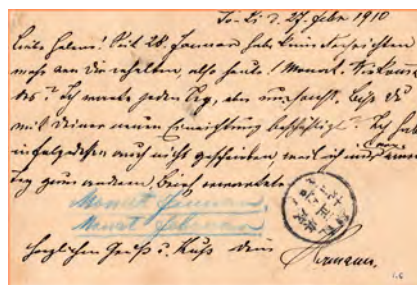 Tsi-Li d. 27. Febr 1910
Liebe Helene! Seit 28. Januar habe keine Nachrichten
mehr von Dir erhalten, also heute 1 Monat.
Ich warte jeden Tag, aber umsonst. Bist Du
mit Deiner neuen Einrichtung beschäftigt? Ich habe
infolgedessen auch nicht geschrieben, weil ich immer von einem
Tag zum andern Brief erwartete
Monat Januar
Monat Februar
Herzlichen Gruß u. Kuß Dein Hermann.